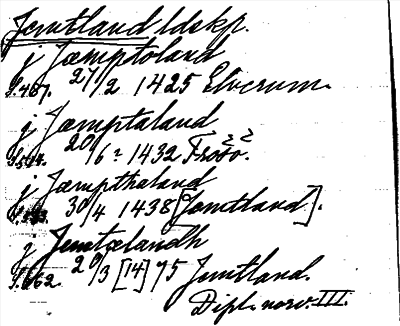 Jemtland ldskp.
j Jæmptoland
S. 487. 27/2 1425 Elverum.
j Jæmptaland
20/6 1432 Frösö.
j Jæmpthaland
30/4 1438 [Jemtland].
j Jemtælandh
S. 662. 20/3 [14]75 Jemtland.
Dipl. norv. III.